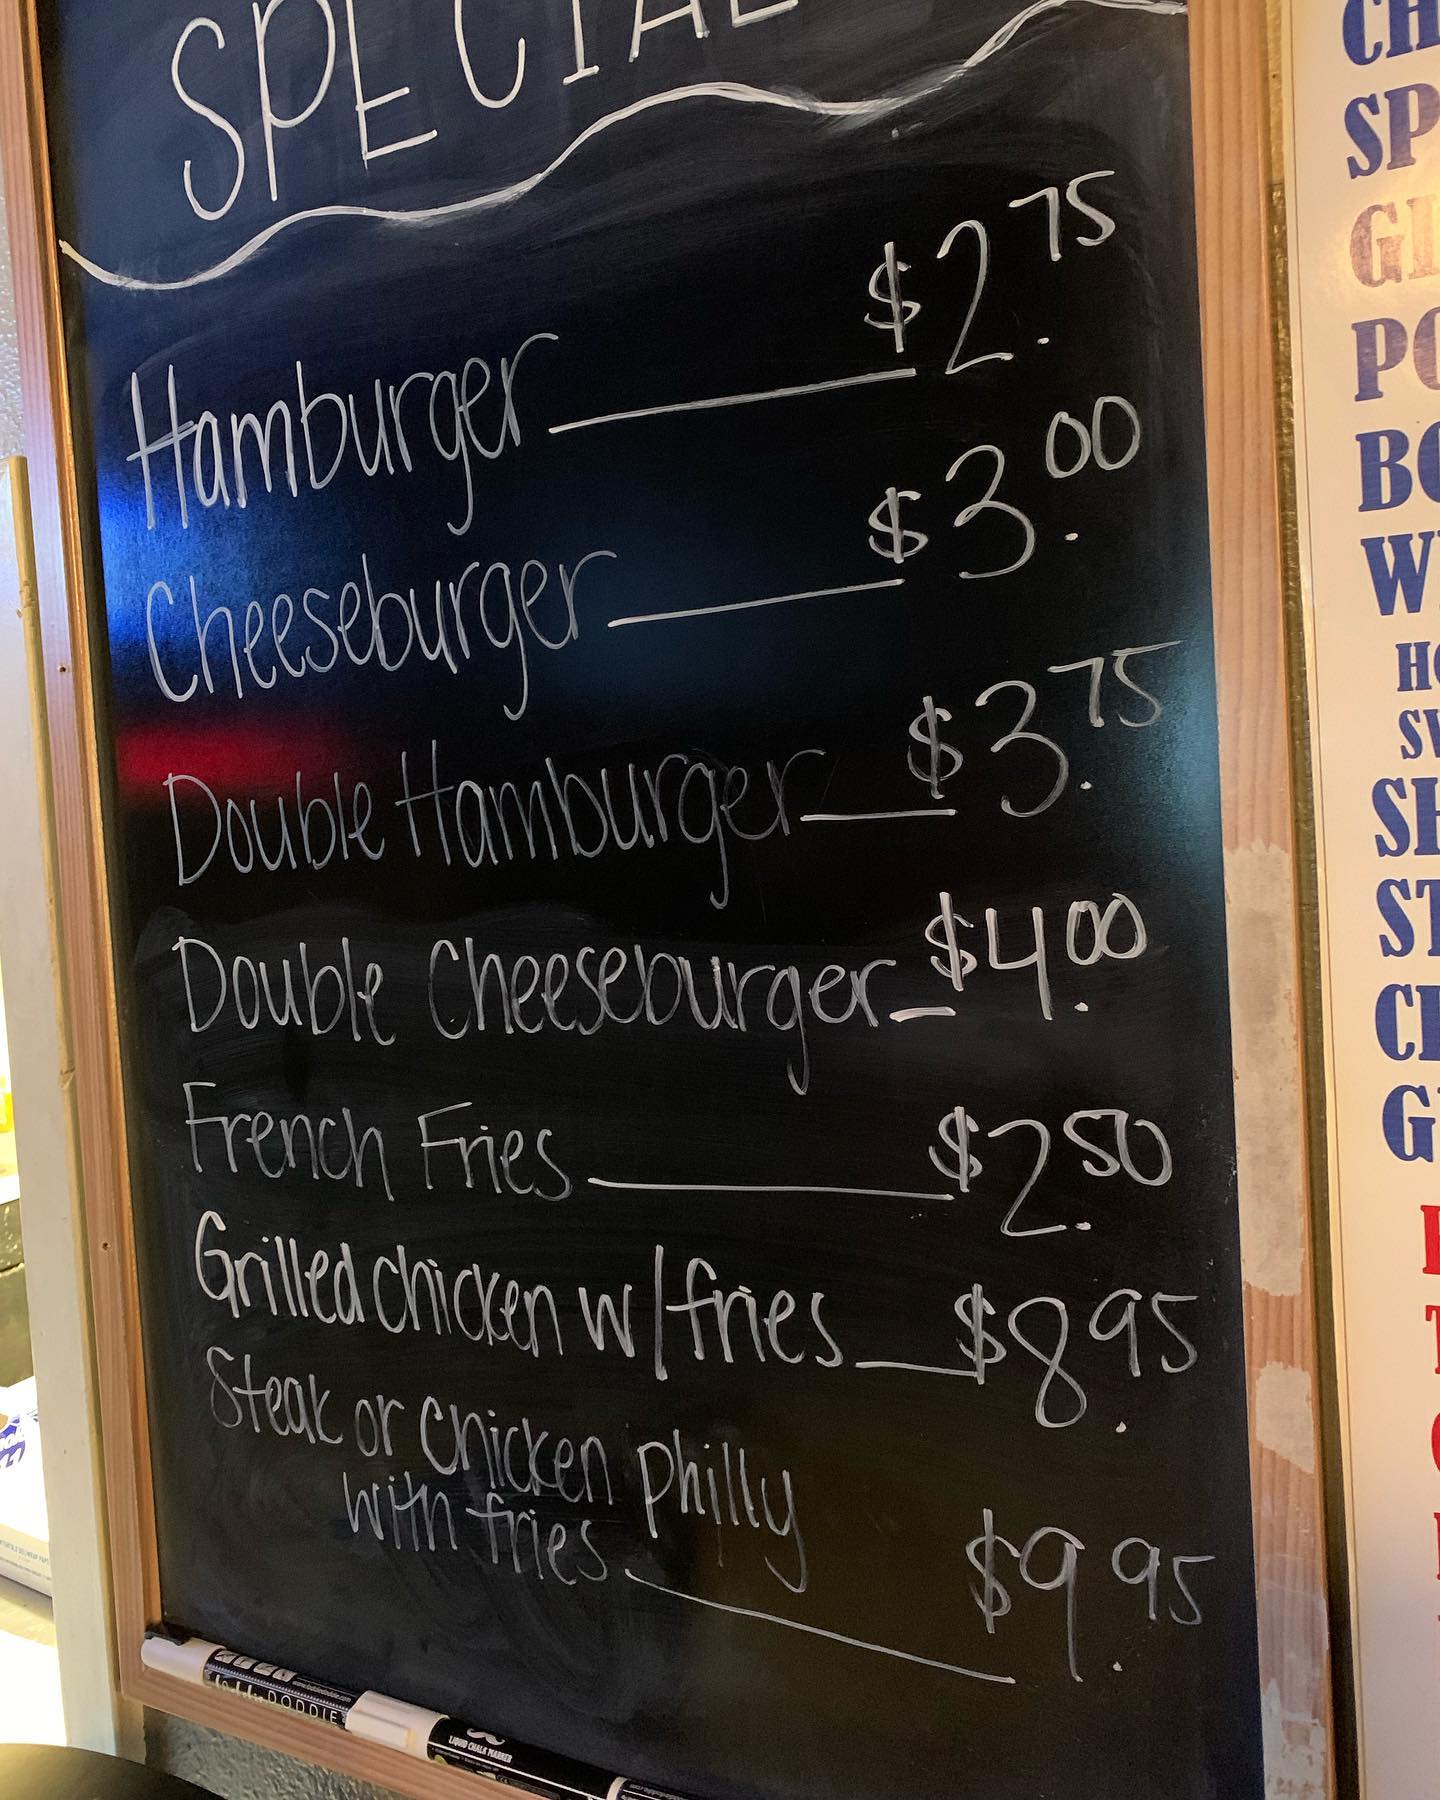 SPECIAL
Hamburger $2.75
Cheeseburger $3.00
Double Hamburger $3.75
Double Cheeseburger $4.00
French Fries $2.50
Grilled chicken w/fries $8.95
Steak or chicken philly
with fries $9.95
DODDIE
LIQUID CHALK MARKER
CH
SP
GI
PO
BO
HO
SW
SH
ST